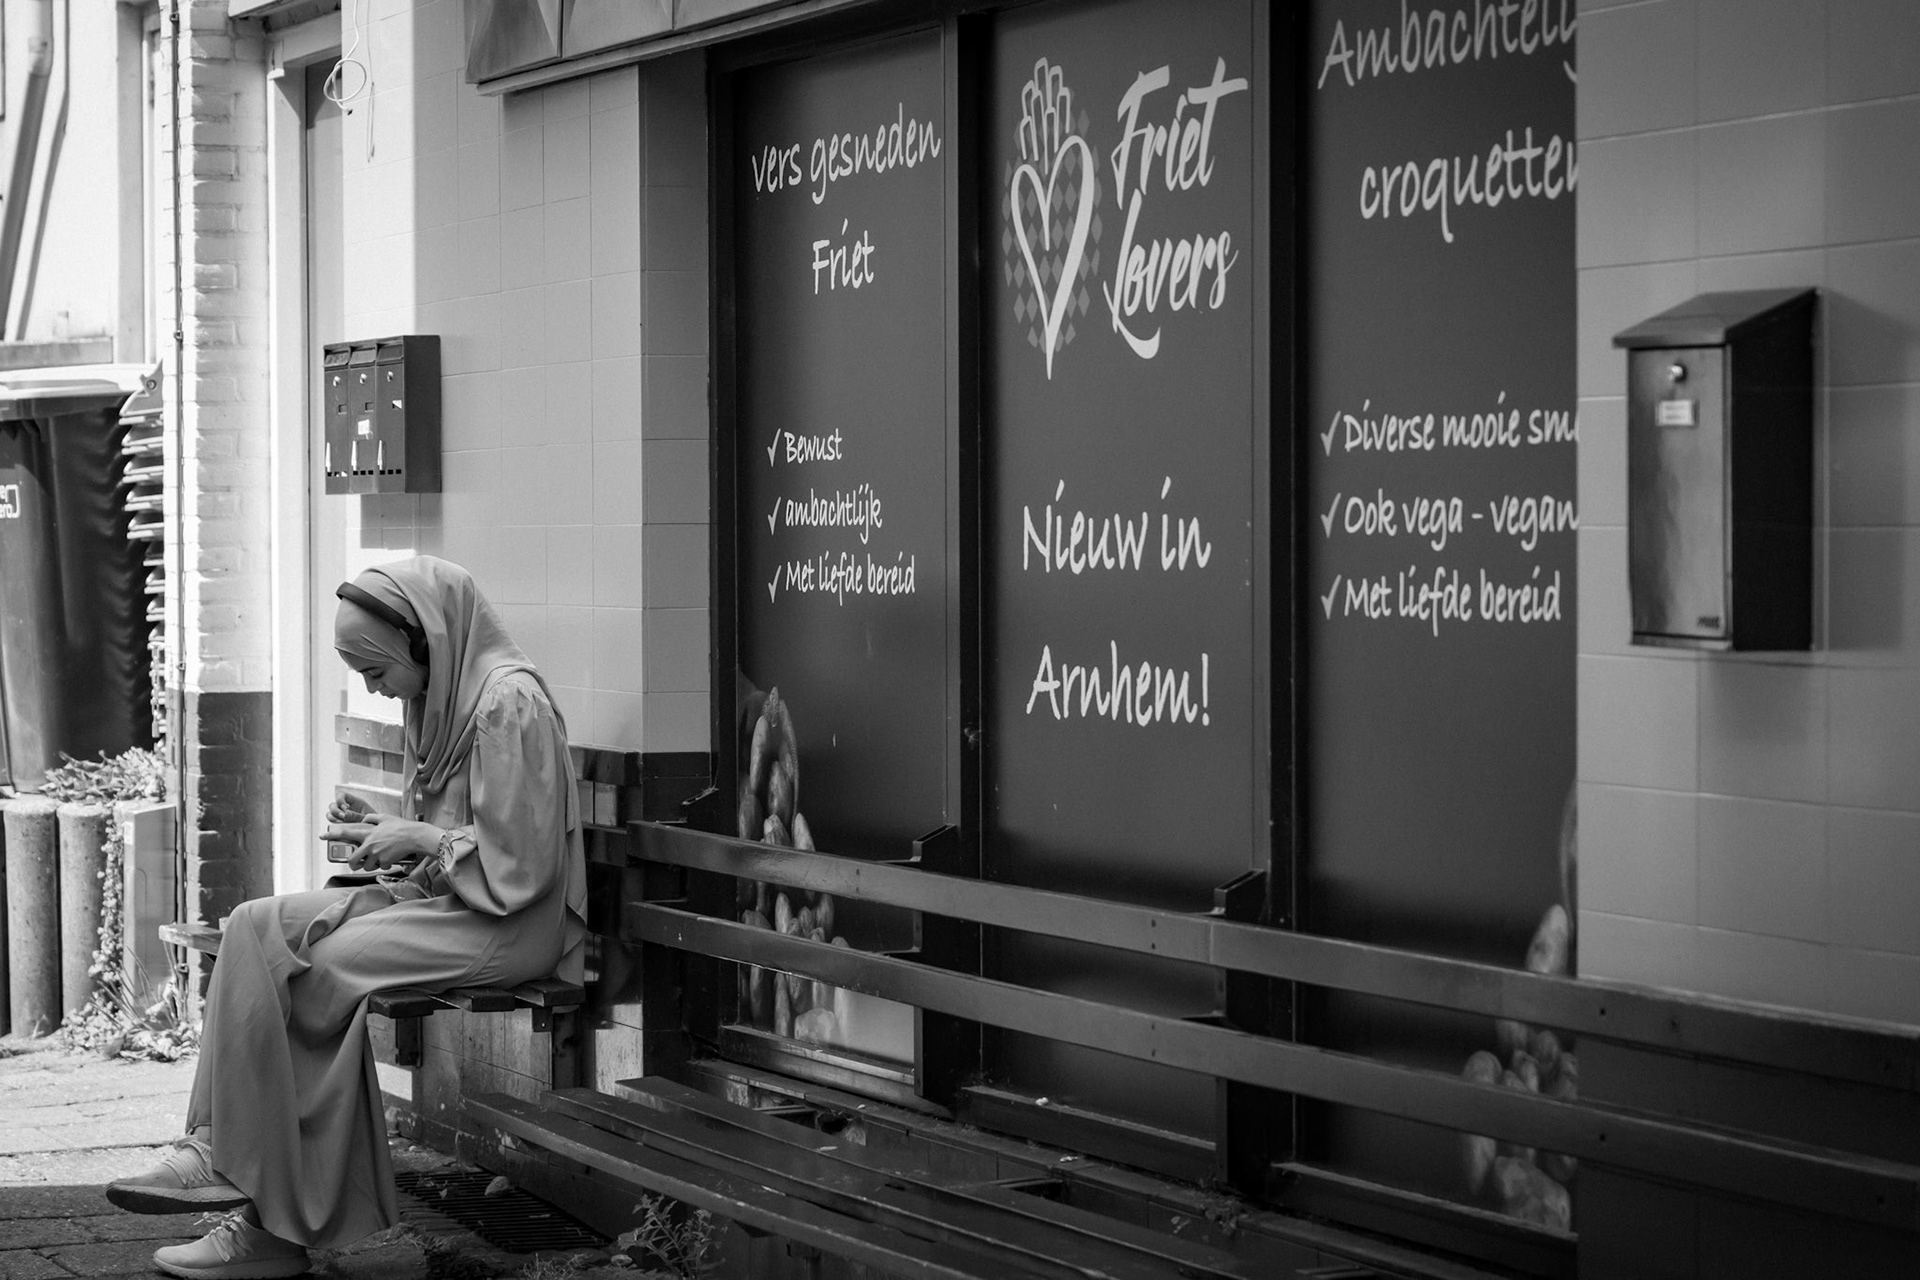 vers gesneden
Friet
✓ Bewust
✓ ambachtlijk
✓ Met liefde bereid
Friet
Lovers
Nieuw in
Arnhem!
Ambachtely
croquetten
✓ Diverse mooie
✓ Ook vega - vegan
✓ Met liefde bereid